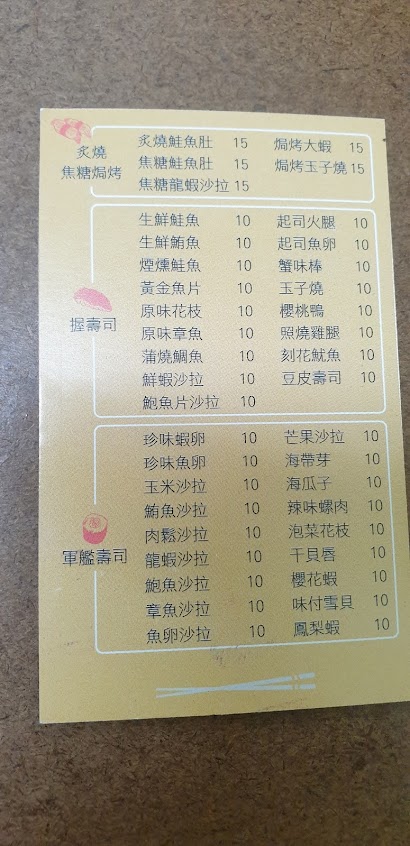 炙燒
焦糖焗烤
炙燒鮭魚肚 15 焗烤大蝦 15
焦糖鮭魚肚 15 焗烤玉子燒 15
焦糖龍蝦沙拉 15
握壽司
生鮮鮭魚 10 起司火腿 10
生鮮鮪魚 10 起司魚卵 10
煙燻鮭魚 10 蟹味棒 10
黃金魚片 10 玉子燒 10
原味花枝 10 櫻桃鴨 10
原味章魚 10 照燒雞腿 10
蒲燒鯛魚 10 刻花魷魚 10
鮮蝦沙拉 10 豆皮壽司 10
鮑魚片沙拉 10
軍艦壽司
珍味蝦卵 10 芒果沙拉 10
珍味魚卵 10 海帶芽 10
玉米沙拉 10 海瓜子 10
鮪魚沙拉 10 辣味螺肉 10
肉鬆沙拉 10 泡菜花枝 10
龍蝦沙拉 10 干貝唇 10
鮑魚沙拉 10 櫻花蝦 10
章魚沙拉 10 味付雪貝 10
魚卵沙拉 10 鳳梨蝦 10